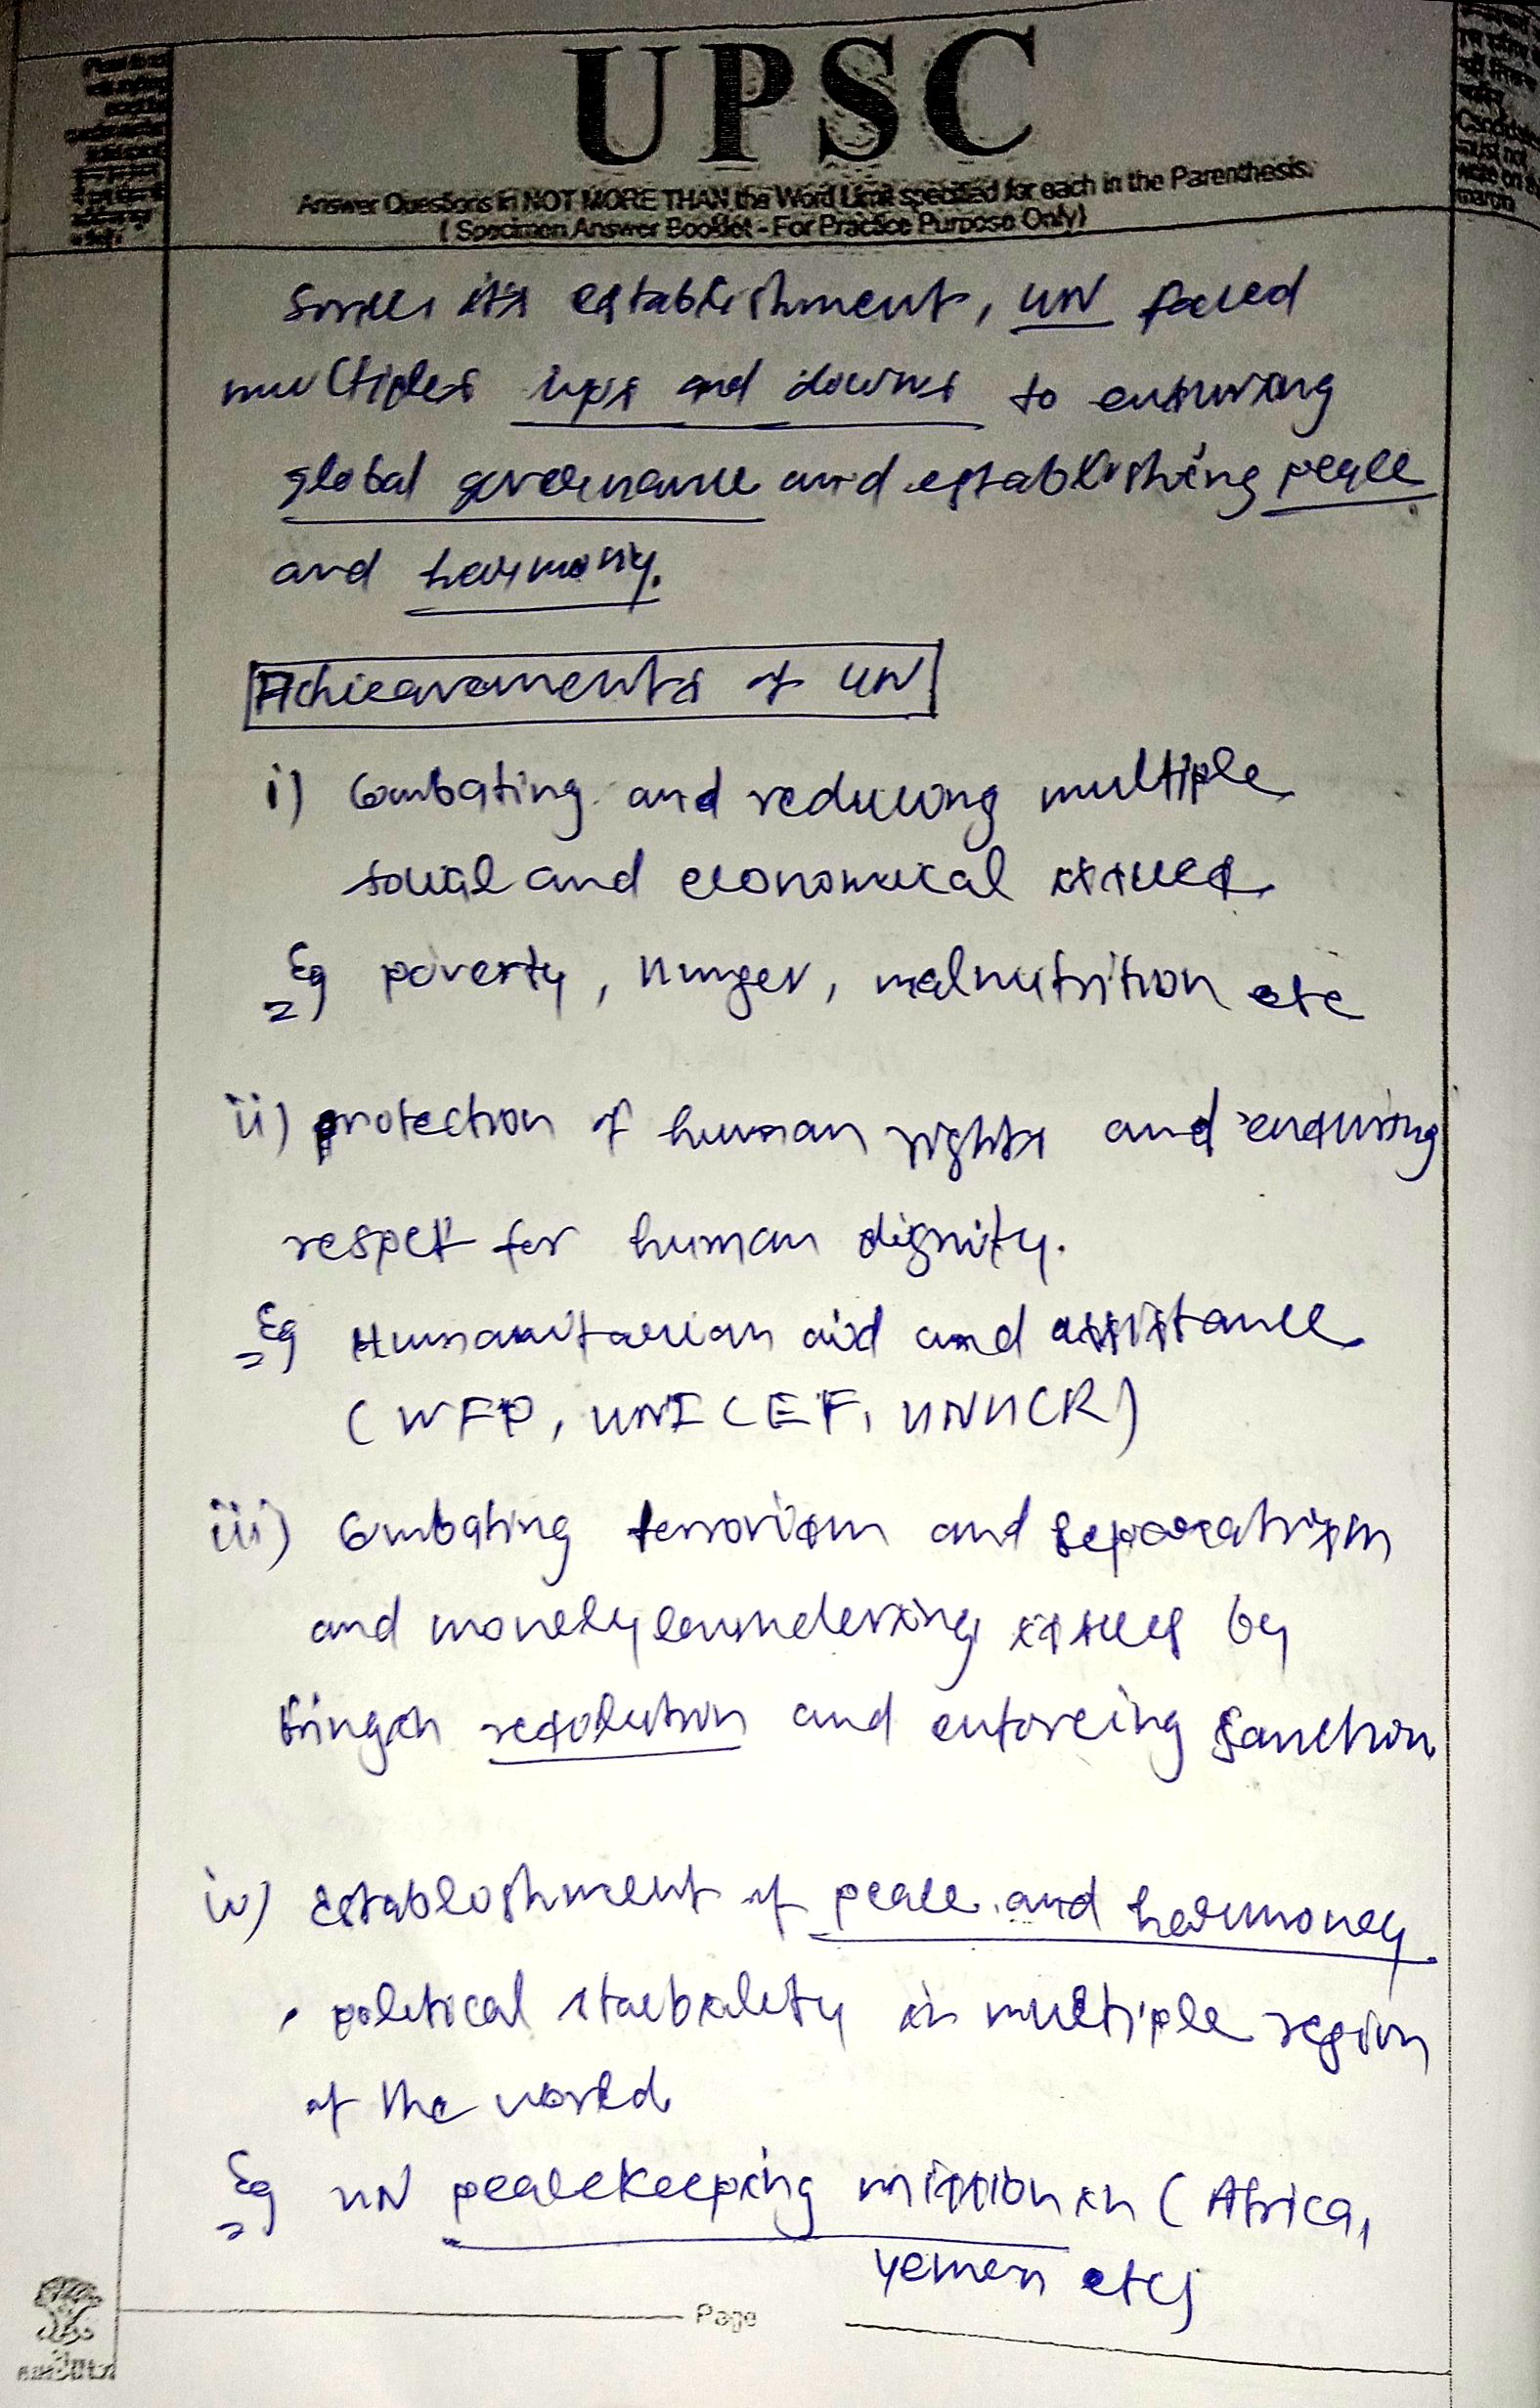 UPSC
Answer Questions in NOT MORE THAN the Word Limit specified for each in the Parenthesis.
(Specimen Answer Booklet - For Practice Purpose Only)
Candidate
must not
write on
margin
its establishment, UN faced
multiples ups and downs to ensuring
global governance and establishing peace
and harmony.
Achieavements of UN
i) Combating and reducing multiple
social and economical issues
Eg poverty, hunger, malnutrition etc
ii) protection of human rights and ensuring
respect for human dignity.
Eg Humanitarian aid and assistance
(WFP, UNICEF, UNHCR)
iii) Combating terrorism and separatism
and money laundering issues by
resolution and enforcing sanction
iv) Establishment of peace and harmoney
• political stability in multiple region
of the world
Eg UN peacekeeping mission in (Africa,
Yemen etc)
Page